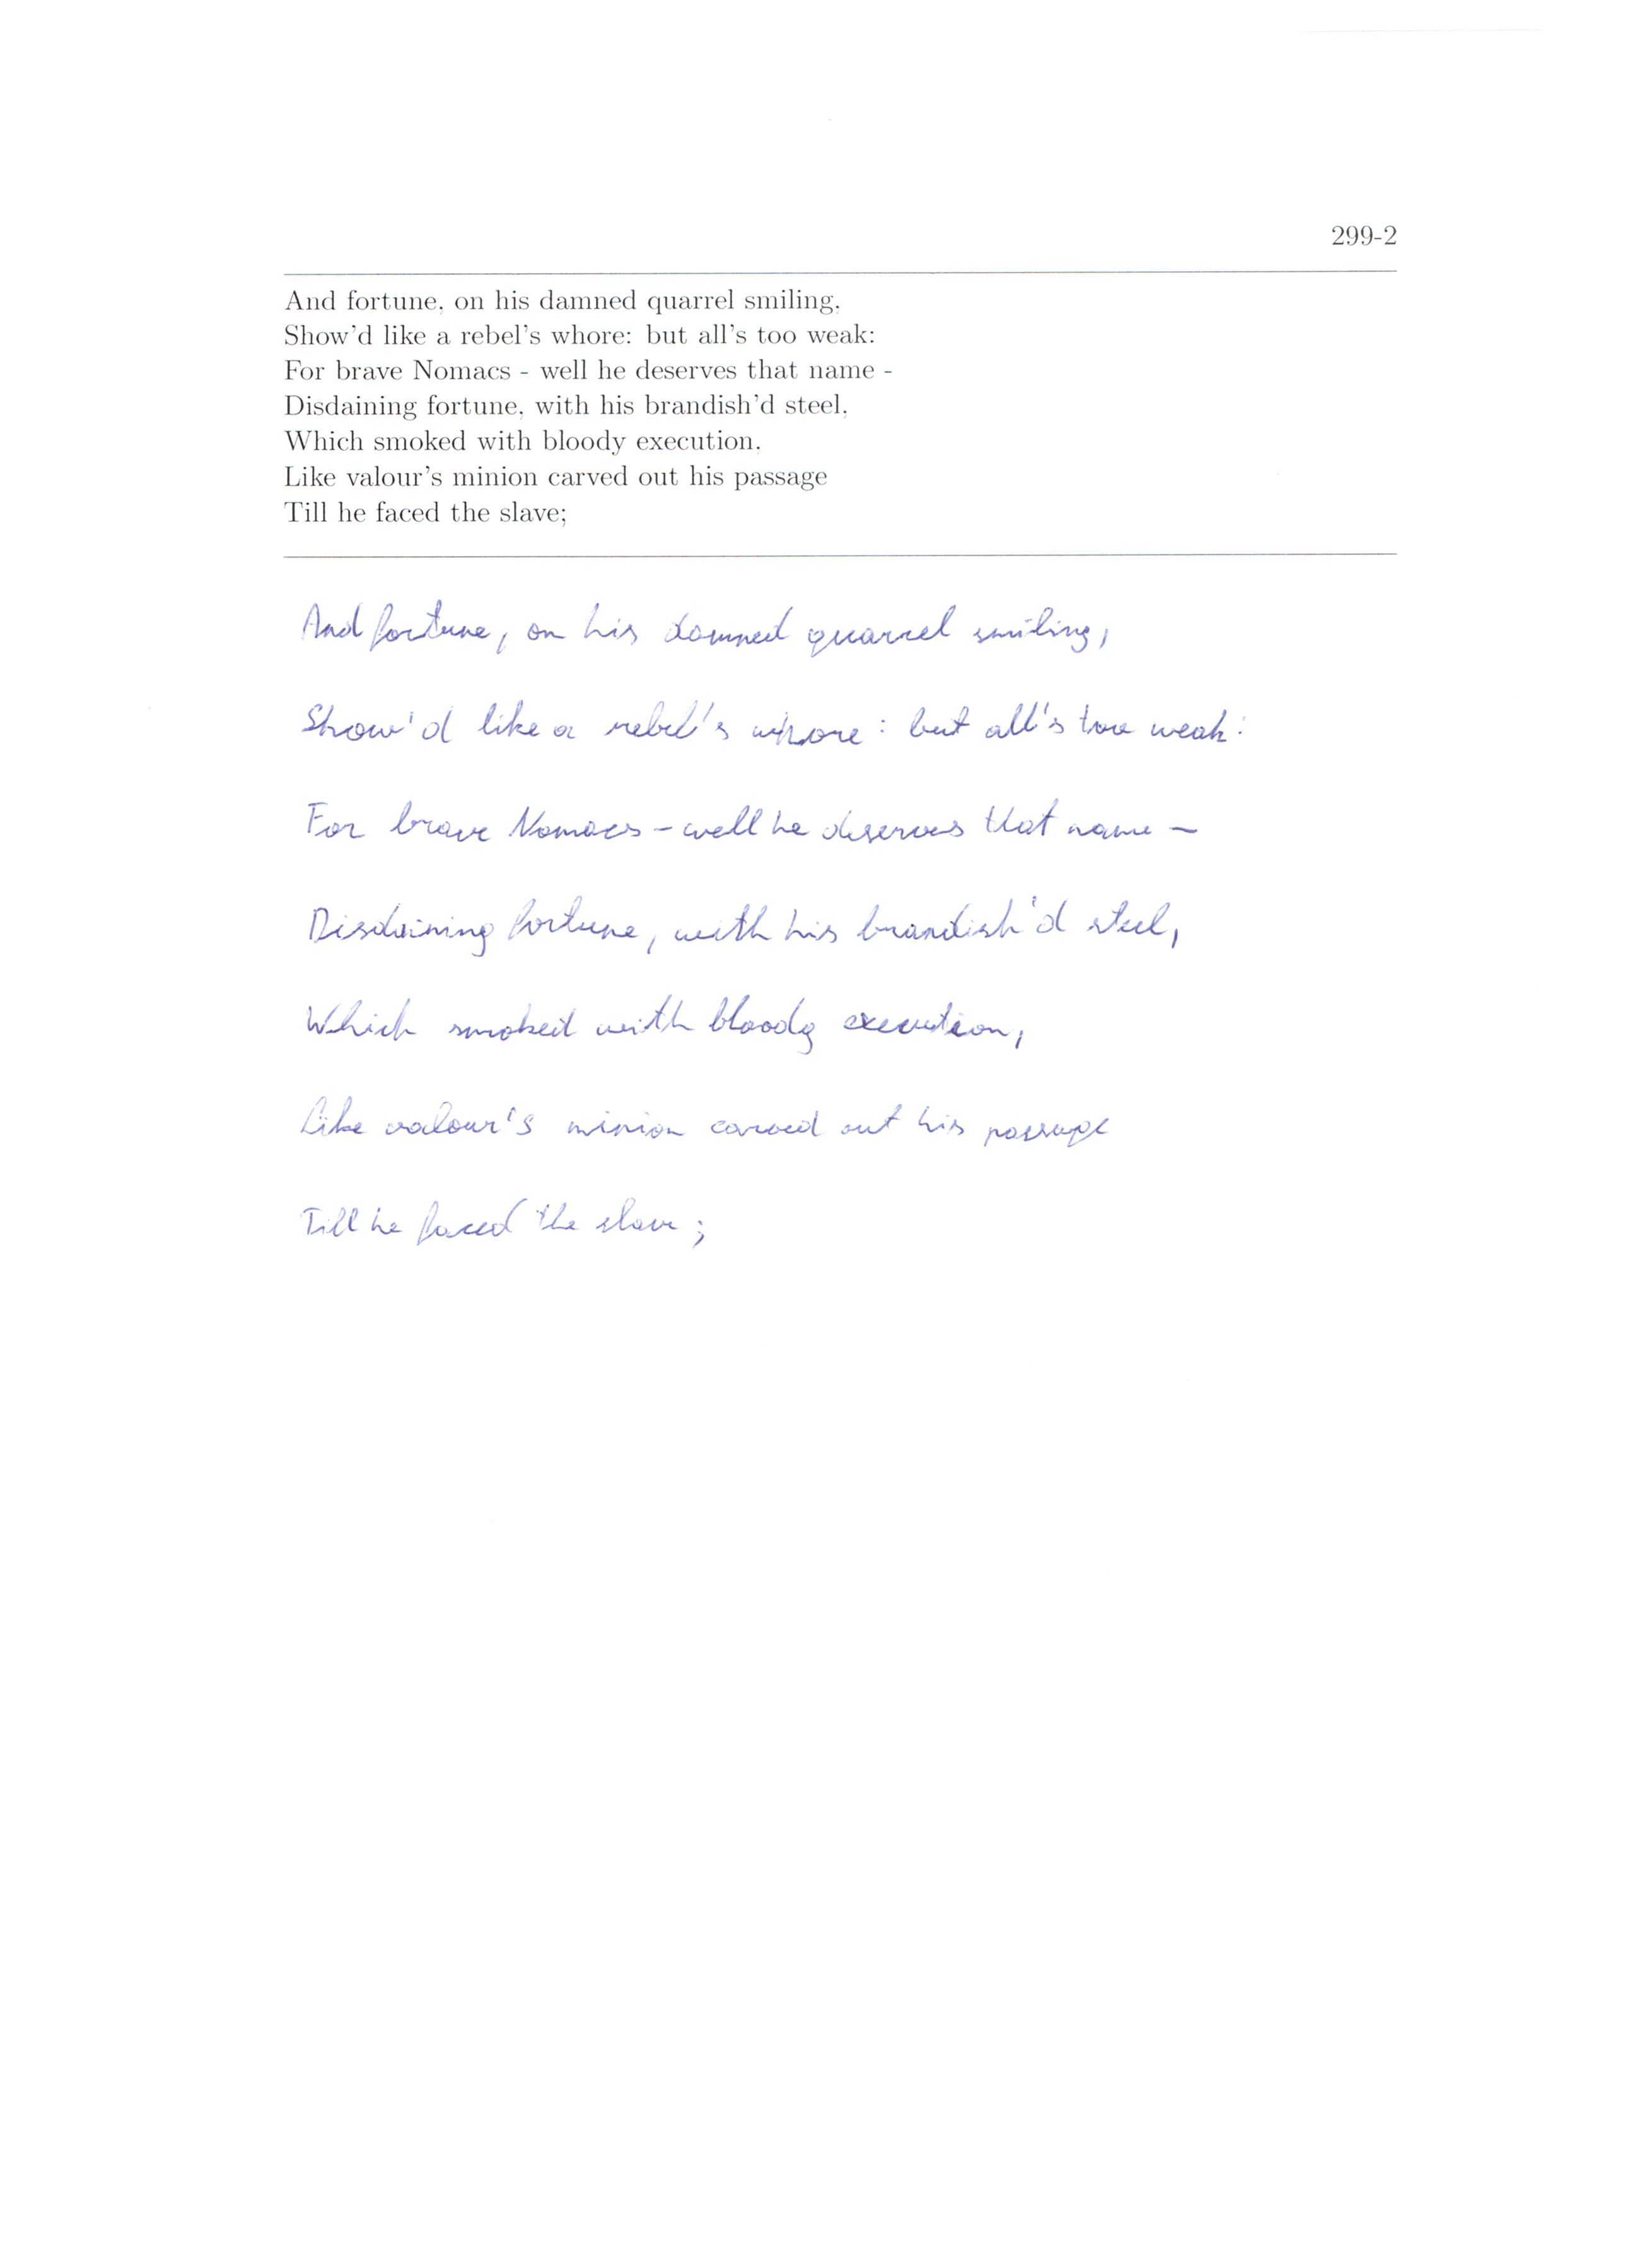 299-2
And fortune, on his damned quarrel smiling,
Show'd like a rebel's whore: but all's too weak:
For brave Nomacs - well he deserves that name -
Disdaining fortune, with his brandish'd steel,
Which smoked with bloody execution,
Like valour's minion carved out his passage
Till he faced the slave;
And fortune, on his damned quarrel smiling,
Show'd like a rebel's whore: but all's too weak:
For brave Nomacs - well he deserves that name -
Disdaining fortune, with his brandish'd steel,
Which smoked with bloody execution,
Like valour's minion carved out his passage
Till he faced the slave;